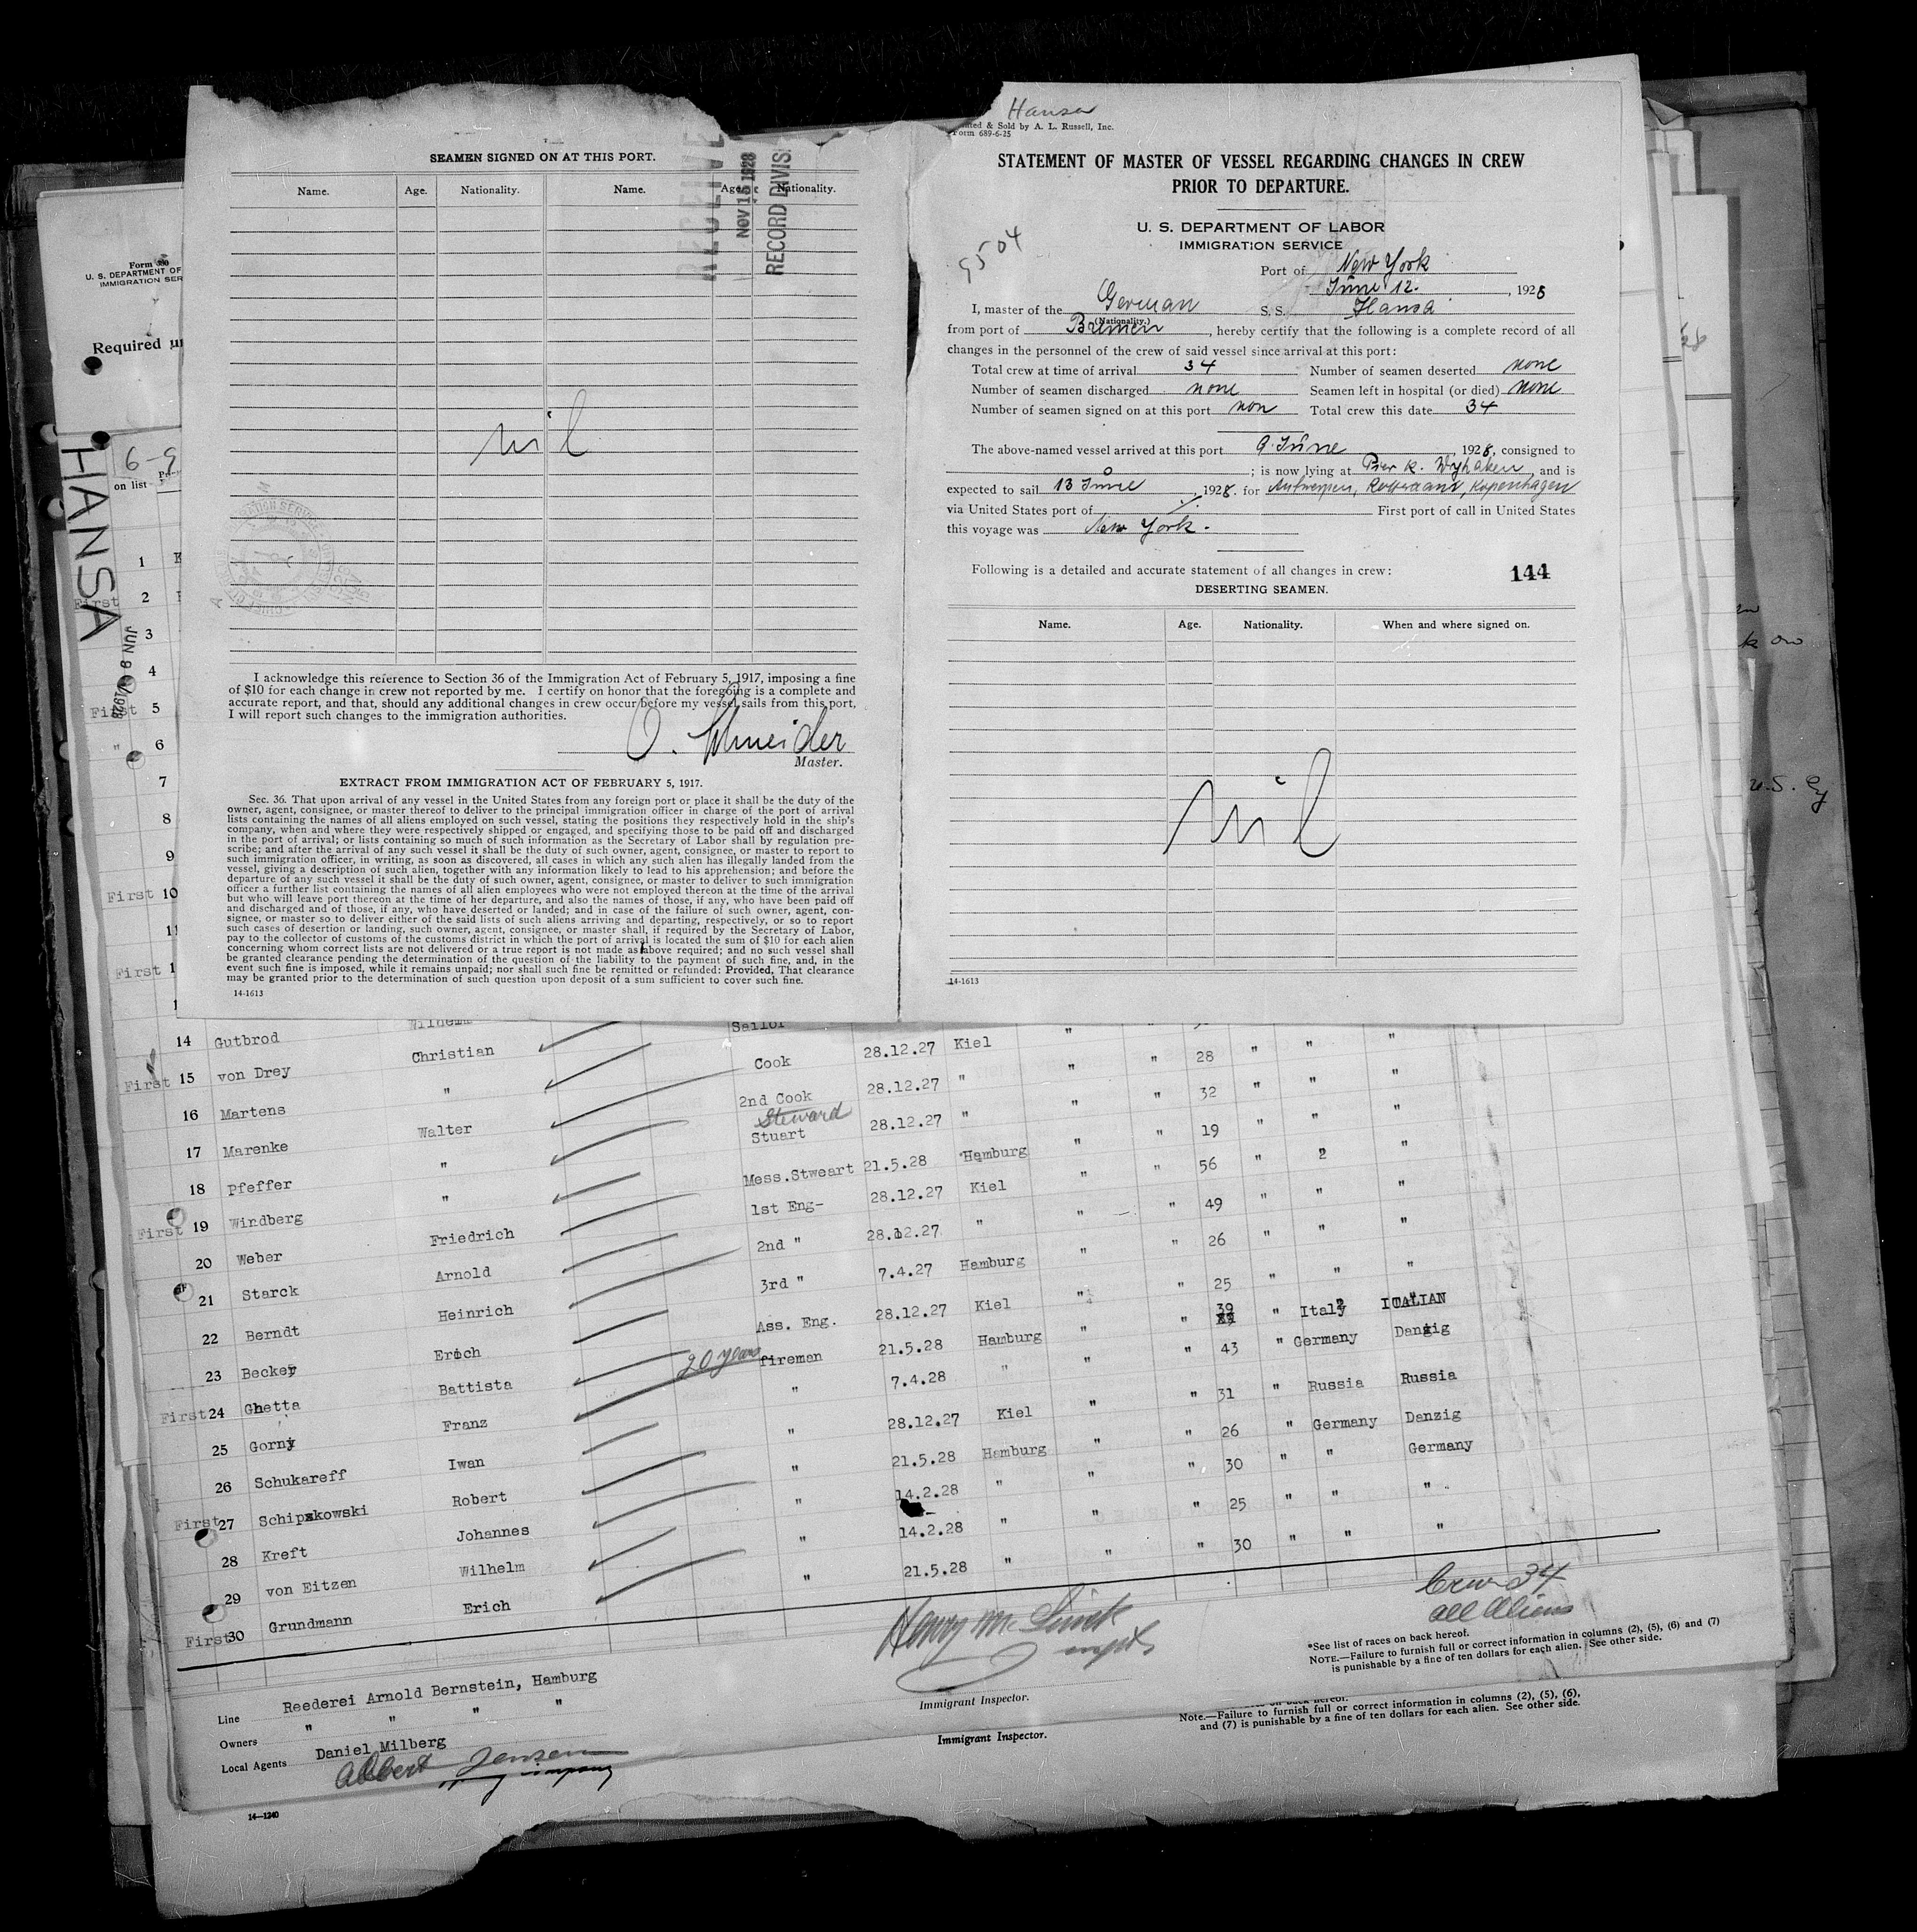 Hansa
& Sold by A. L. Russell, Inc.
Form 689-6-25
SEAMEN SIGNED ON AT THIS PORT.
Name. Age. Nationality. Name. Age. Nationality.
NOV 15 1928
RECORD DIVIS
nil
I acknowledge this reference to Section 36 of the Immigration Act of February 5, 1917, imposing a fine
of $10 for each change in crew not reported by me. I certify on honor that the foregoing is a complete and
accurate report, and that, should any additional changes in crew occur before my vessel sails from this port,
I will report such changes to the immigration authorities.
O. Schneider
Master.
EXTRACT FROM IMMIGRATION ACT OF FEBRUARY 5, 1917.
Sec. 36. That upon arrival of any vessel in the United States from any foreign port or place it shall be the duty of the
owner, agent, consignee, or master thereof to deliver to the principal immigration officer in charge of the port of arrival
lists containing the names of all aliens employed on such vessel, stating the positions they respectively hold in the ship's
company, when and where they were respectively shipped or engaged, and specifying those to be paid off and discharged
in the port of arrival; or lists containing so much of such information as the Secretary of Labor shall by regulation pre-
scribe; and after the arrival of any such vessel it shall be the duty of such owner, agent, consignee, or master to report to
such immigration officer, in writing, as soon as discovered, all cases in which any such alien has illegally landed from the
vessel, giving a description of such alien, together with any information likely to lead to his apprehension; and before the
departure of any such vessel it shall be the duty of such owner, agent, consignee, or master to deliver to such immigration
officer a further list containing the names of all alien employees who were not employed thereon at the time of the arrival
but who will leave port thereon at the time of her departure, and also the names of those, if any, who have been paid off
and discharged and of those, if any, who have deserted or landed; and in case of the failure of such owner, agent, con-
signee, or master so to deliver either of the said lists of such aliens arriving and departing, respectively, or so to report
such cases of desertion or landing, such owner, agent, consignee, or master shall, if required by the Secretary of Labor,
pay to the collector of customs of the customs district in which the port of arrival is located the sum of $10 for each alien
concerning whom correct lists are not delivered or a true report is not made as above required; and no such vessel shall
be granted clearance pending the determination of the question of the liability to the payment of such fine, and, in the
event such fine is imposed, while it remains unpaid; nor shall such fine be remitted or refunded: Provided, That clearance
may be granted prior to the determination of such question upon deposit of a sum sufficient to cover such fine.
14-1613
STATEMENT OF MASTER OF VESSEL REGARDING CHANGES IN CREW
PRIOR TO DEPARTURE.
U. S. DEPARTMENT OF LABOR
IMMIGRATION SERVICE
9504
Port of New York
June 12. , 1928
I, master of the German S. S. Hansa
(Nationality.)
from port of Bremen , hereby certify that the following is a complete record of all
changes in the personnel of the crew of said vessel since arrival at this port:
Total crew at time of arrival 34 Number of seamen deserted none
Number of seamen discharged none Seamen left in hospital (or died) none
Number of seamen signed on at this port non Total crew this date 34
The above-named vessel arrived at this port 9. June 1928, consigned to
; is now lying at Pier K. Wyhaken , and is
expected to sail 13 June , 1928. for Antwerpen, Rotterdam, Kopenhagen
via United States port of First port of call in United States
this voyage was New York.
Following is a detailed and accurate statement of all changes in crew: 144
DESERTING SEAMEN.
Name. Age. Nationality. When and where signed on.
nil
14-1613
Form 380
U. S. DEPARTMENT OF
IMMIGRATION SER
Required un
HANSA
6-9
on list
JUN 8 1928
1 K
First 2
3
4
First 5
" 6
7
8
9
First 10
11
First 1
1
14 Gutbrod Wilhelm Sailor
First 15 von Drey Christian Cook 28.12.27 Kiel " " 28 " " "
16 Martens " 2nd Cook 28.12.27 " " " 32 " " "
Steward
17 Marenke Walter Stuart 28.12.27 " " " 19 " " "
18 Pfeffer " Mess.Stweart 21.5.28 Hamburg " " 56 " " "
First 19 Windberg " 1st Eng- 28.12.27 Kiel " " 49 " " "
20 Weber Friedrich 2nd " 28.12.27 " " " 26 " " "
21 Starck Arnold 3rd " 7.4.27 Hamburg " " 25 " " "
22 Berndt Heinrich Ass. Eng. 28.12.27 Kiel " " 39 " Italy ITALIAN
23 Becker Erich 20 years fireman 21.5.28 Hamburg " " 43 " Germany Danzig
First 24 Ghetta Battista " 7.4.28 " " " 31 " Russia Russia
25 Gorny Franz " 28.12.27 Kiel " " 26 " Germany Danzig
26 Schukareff Iwan " 21.5.28 Hamburg " " 30 " " Germany
First 27 Schipzkowski Robert " 14.2.28 " " " 25 " " "
28 Kreft Johannes " 14.2.28 " " " 30 " " "
29 von Eitzen Wilhelm " 21.5.28 " "
First 30 Grundmann Erich
Crew 34
all Aliens
*See list of races on back hereof.
NOTE.—Failure to furnish full or correct information in columns (2), (5), (6) and (7)
is punishable by a fine of ten dollars for each alien. See other side.
Line Reederei Arnold Bernstein, Hamburg
Owners " " " "
Local Agents Daniel Milberg
Albert Jensen
company
Immigrant Inspector.
Note.—Failure to furnish full or correct information in columns (2), (5), (6),
and (7) is punishable by a fine of ten dollars for each alien. See other side.
Immigrant Inspector.
14—1240
U.S. Cy